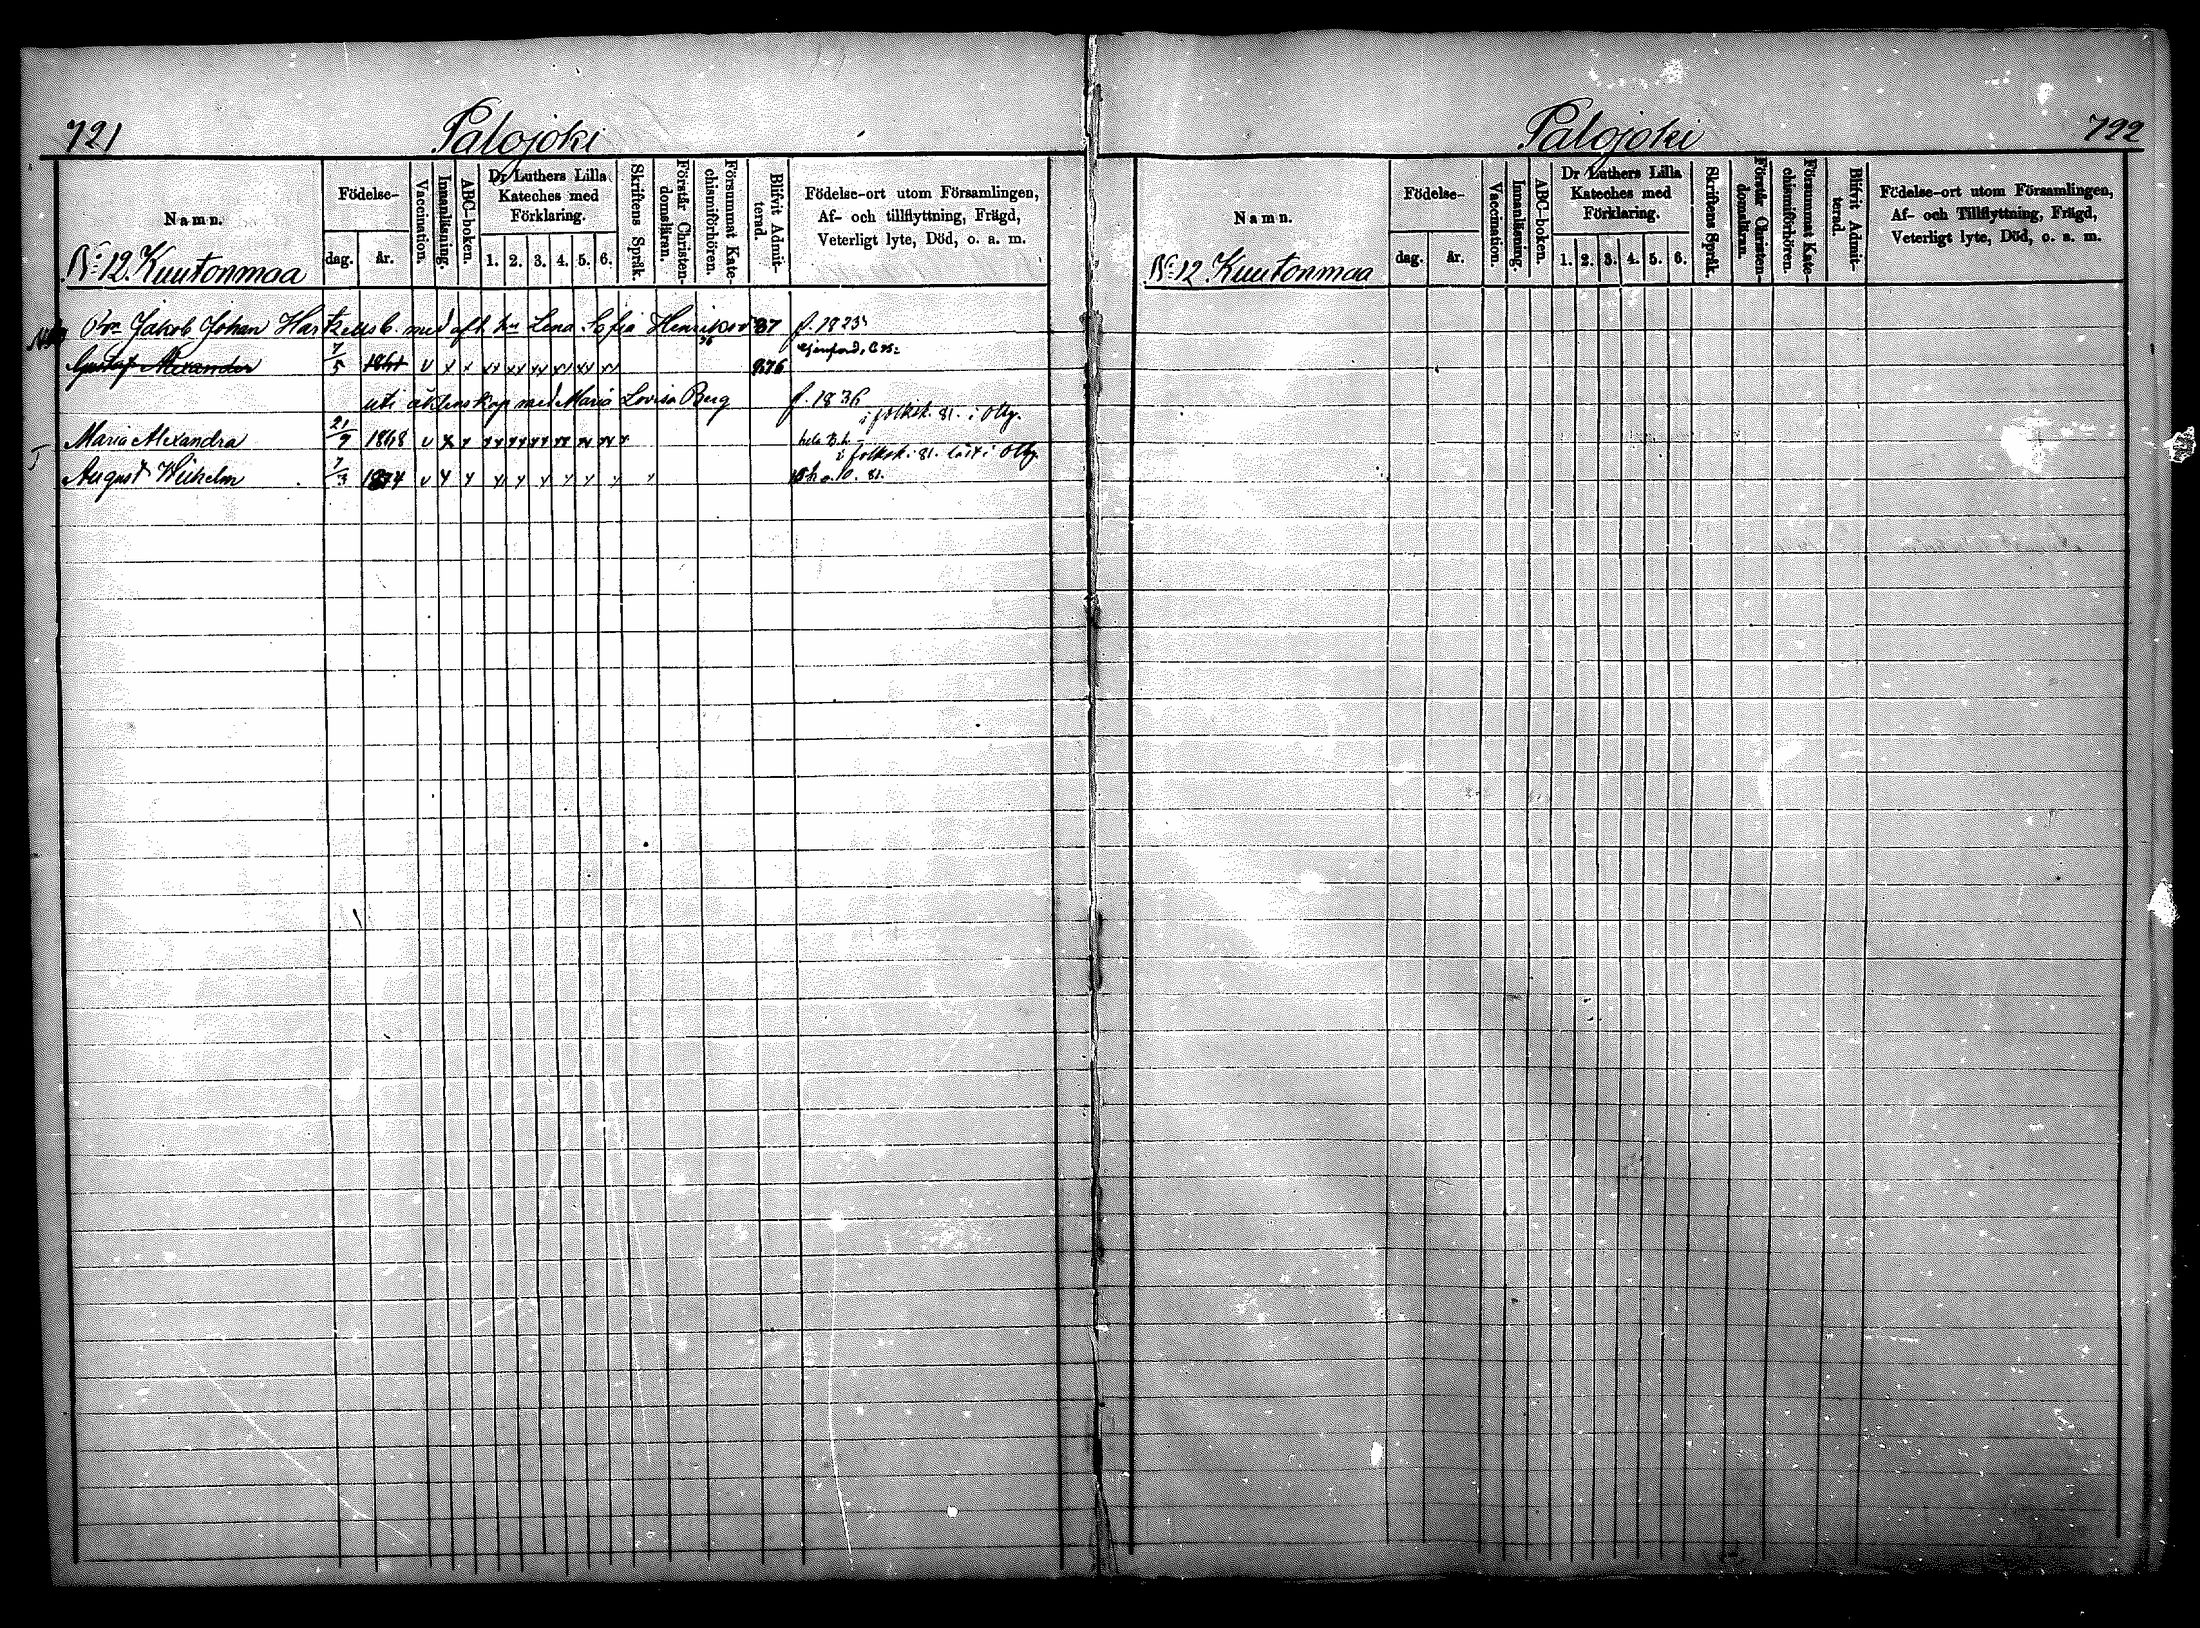 721 Palojoki
Namn.
Födelse-
dag. år.
Vaccination.
Innanläsning.
ABC-boken.
Dr Luthers Lilla
Kateches med
Förklaring.
1. 2. 3. 4. 5. 6.
Skriftens Språk.
Förstår Christen-
domsläran.
Försummat Kate-
chismiförhören.
Blifvit Admit-
terad.
Födelse-ort utom Församlingen,
Af- och tillflyttning, Frägd,
Veterligt lyte, Död, o. a. m.
No 12. Kuutonmaa
Jakob Johan med Lena Sofia Henriksd 37 f. 1825
Gustaf Alexander 7/5 1861 v x x xx xx xx xx xx xx 876
uti äktenskap med Maria Lovisa Berg f. 1836
i folksk. 81. i
Maria Alexandra 21/9 1868 v x x xx xx xx xx xx xx x
i folksk. 81.
August Wilhelm 7/3 1874 v x x x x x x x x 81.
Palojoki 722
Namn.
Födelse-
dag. år.
Vaccination.
Innanläsning.
ABC-boken.
Dr Luthers Lilla
Kateches med
Förklaring.
1. 2. 3. 4. 5. 6.
Skriftens Språk.
Förstår Christen-
domsläran.
Försummat Kate-
chismiförhören.
Blifvit Admit-
terad.
Födelse-ort utom Församlingen,
Af- och Tillflyttning, Frägd,
Veterligt lyte, Död, o. a. m.
No 12 Kuutonmaa